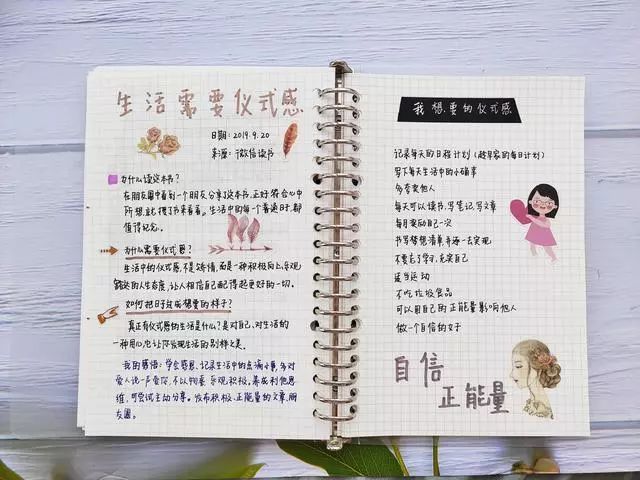 生活需要仪式感
日期：2019.9.20
来源：微信读书
为什么读这本书？
在朋友圈中看到一个朋友分享了这本书，正好符合心中
所想，就搜了书来看看。生活中的每一个普通时，都
值得纪念。
为什么需要仪式感？
生活中的仪式感，不是矫情，而是一种积极向上、乐观
豁达的人生态度，让人相信自己配得起更好的一切。
如何把日子过成想要的样子？
真正有仪式感的生活是什么？是对自己、对生活的
一种用心，它让你发现生活的别样之美。
我的感悟：学会感恩、记录生活中的点滴小事，多对
爱人说一声爱你，不以物喜，乐观、积极，养成利他思
维，可尝试主动分享。发布积极、正能量的文章，朋
友圈。
我想要的仪式感
记录每天的日程计划（趁早家的每日计划）
写下每天生活中的小确幸
多夸奖他人
每天可以读书、写笔记、写文章
每月奖励自己一次
书写梦想清单，并逐一去实现
不要忘了学习，充实自己
适当运动
不吃垃圾食品
可以用自己的正能量影响他人
做一个自信的女子
自信
正能量